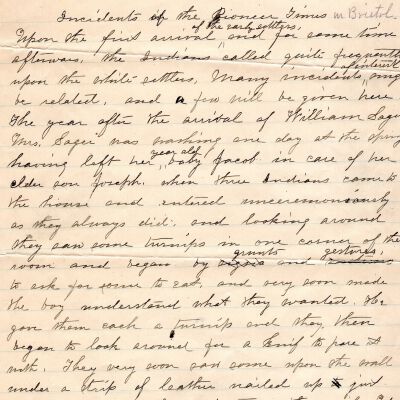 Incidents of the Pioneer Times in Bristol.
of the early settlers,
Upon the first arrival and for some time
afterwars, the Indians called quite frequently
upon the white settlers, Many incidents of interest may
be related, and a few will be given here
The year after the arrival of William Sager
Mrs. Sager was washing one day at the spring
having left her year old baby Jacob in care of her
elder son Joseph. when three Indians came to
the house and entered unceremoniously
as they always did; and looking around
they saw some turnips in one corner of the
room and began by grunts and gestures,
to ask for some to eat, and very soon made
the boy understand what they wanted. He
gave them each a turnip and they then
began to look around for a knif to pare it
with. They very soon saw some upon the wall
under a strip of leather nailed up just